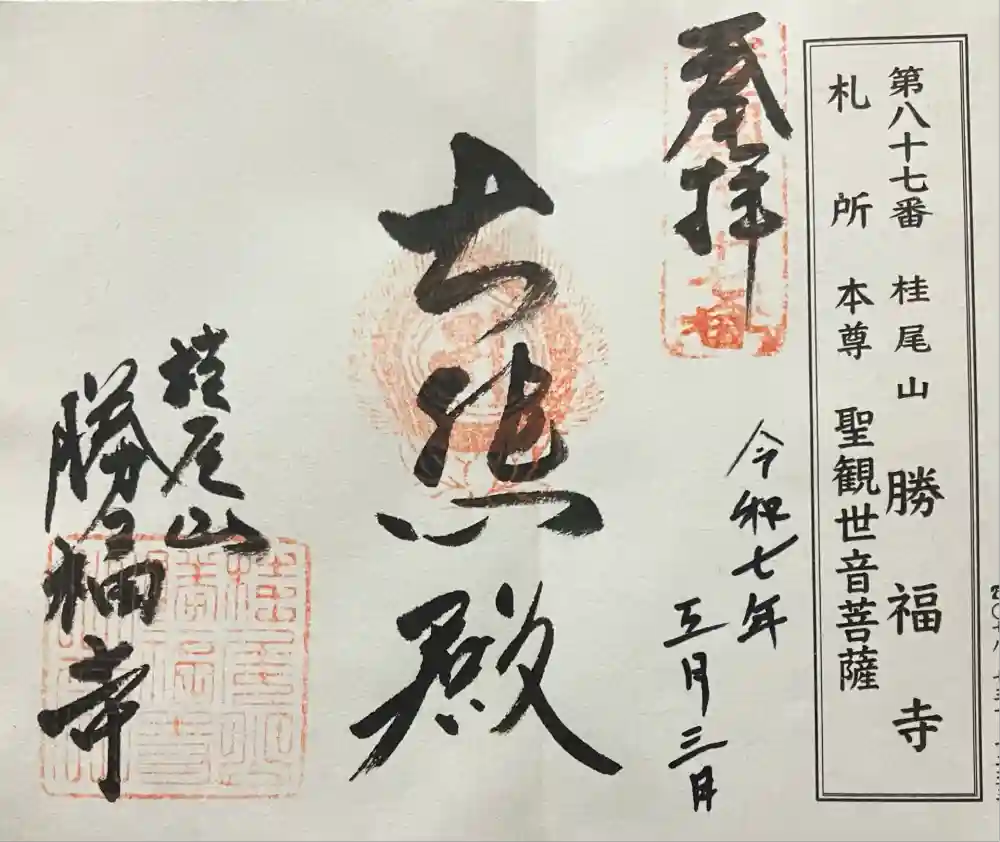 第八十七番 桂尾山 勝福寺
札所本尊 聖観世音菩薩
奉拝
令和七年
五月三日
大悲殿
桂尾山
勝福寺